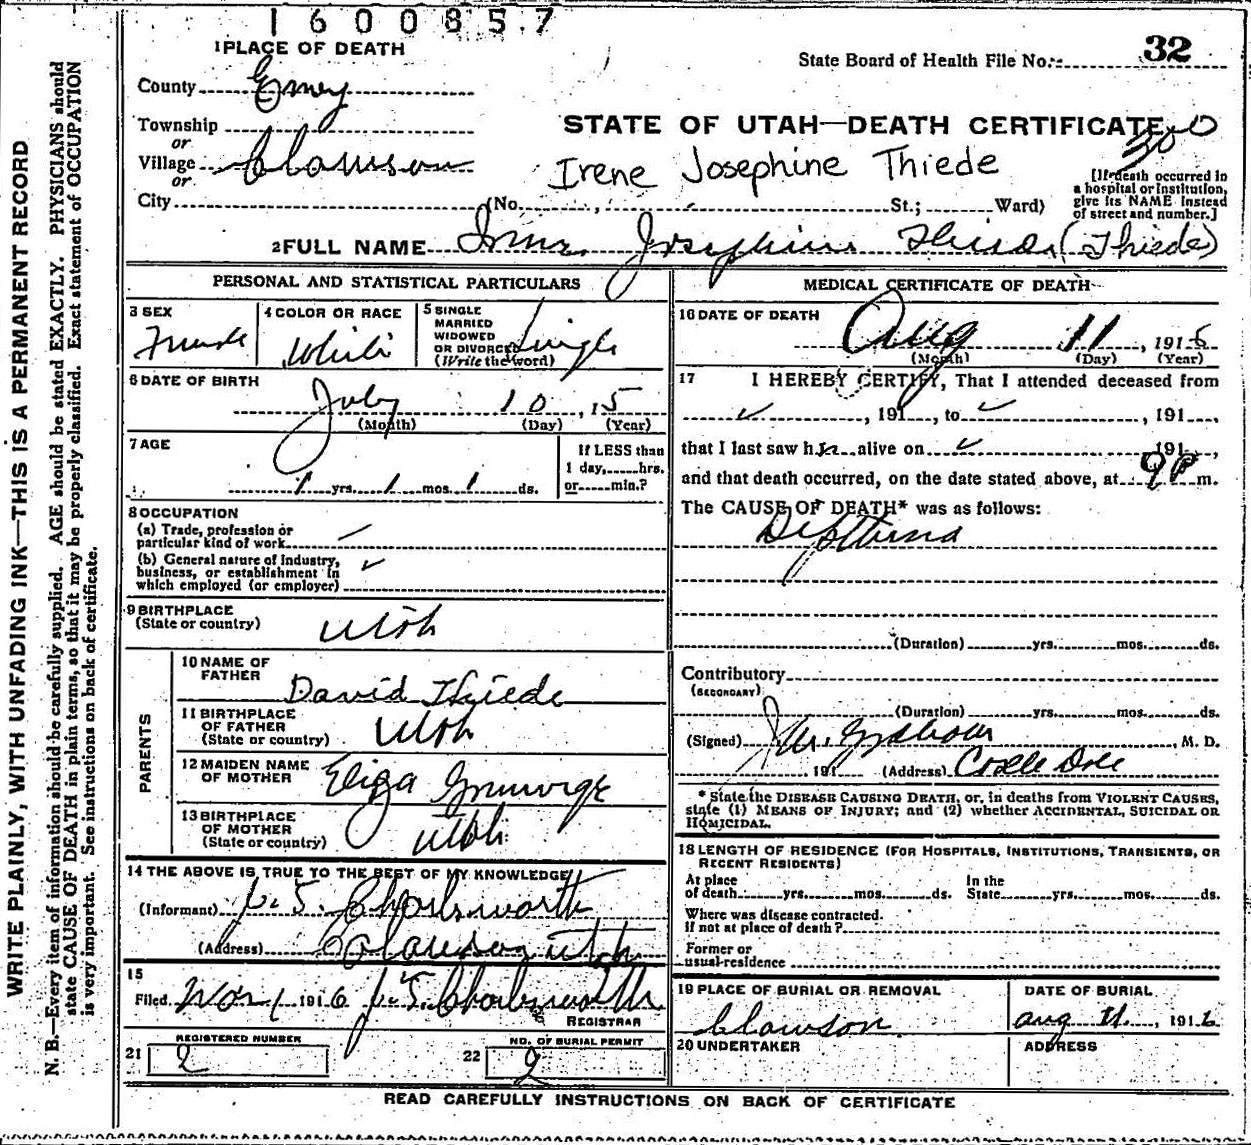 1600857
1 PLACE OF DEATH
State Board of Health File No. 32
County Emery
Township
or
STATE OF UTAH—DEATH CERTIFICATE
300
Village Clawson
Irene Josephine Thiede
or
City (No. , St.; Ward)
[If death occurred in
a hospital or institution,
give its NAME instead
of street and number.]
2 FULL NAME Josephine (Thiede)
PERSONAL AND STATISTICAL PARTICULARS
3 SEX Female
4 COLOR OR RACE White
5 SINGLE
MARRIED
WIDOWED
OR DIVORCED
(Write the word) Single
6 DATE OF BIRTH
July 10, 15
(Month) (Day) (Year)
7 AGE
1 yrs. 1 mos. 1 ds.
If LESS than
1 day, hrs.
or min.?
8 OCCUPATION
(a) Trade, profession or
particular kind of work
(b) General nature of industry,
business, or establishment in
which employed (or employer)
9 BIRTHPLACE
(State or country) Utah
PARENTS
10 NAME OF
FATHER David Thiede
11 BIRTHPLACE
OF FATHER
(State or country) Utah
12 MAIDEN NAME
OF MOTHER Eliza
13 BIRTHPLACE
OF MOTHER
(State or country) Utah
14 THE ABOVE IS TRUE TO THE BEST OF MY KNOWLEDGE
(Informant) Charlsworth
(Address) Clawson Utah
15
Filed Nov 1 1916 Charlsworth
REGISTRAR
REGISTERED NUMBER
21 2
NO. OF BURIAL PERMIT
22 2
MEDICAL CERTIFICATE OF DEATH
16 DATE OF DEATH
Aug 11, 191
(Month) (Day) (Year)
17 I HEREBY CERTIFY, That I attended deceased from
, 191 , to , 191 ,
that I last saw her alive on 191 ,
and that death occurred, on the date stated above, at 9 P m.
The CAUSE OF DEATH* was as follows:
(Duration) yrs. mos. ds.
Contributory
(SECONDARY)
(Duration) yrs. mos. ds.
(Signed) , M. D.
191 (Address) Castle Dale
* State the DISEASE CAUSING DEATH, or, in deaths from VIOLENT CAUSES,
state (1) MEANS OF INJURY; and (2) whether ACCIDENTAL, SUICIDAL OR
HOMICIDAL.
18 LENGTH OF RESIDENCE (FOR HOSPITALS, INSTITUTIONS, TRANSIENTS, OR
RECENT RESIDENTS)
At place
of death yrs. mos. ds.
In the
State yrs. mos. ds.
Where was disease contracted.
If not at place of death?
Former or
usual residence
19 PLACE OF BURIAL OR REMOVAL
Clawson
DATE OF BURIAL
Aug 11, 1916
20 UNDERTAKER
ADDRESS
READ CAREFULLY INSTRUCTIONS ON BACK OF CERTIFICATE
WRITE PLAINLY, WITH UNFADING INK—THIS IS A PERMANENT RECORD
N. B.—Every item of information should be carefully supplied. AGE should be stated EXACTLY. PHYSICIANS should
state CAUSE OF DEATH in plain terms, so that it may be properly classified. Exact statement of OCCUPATION
is very important. See instructions on back of certificate.